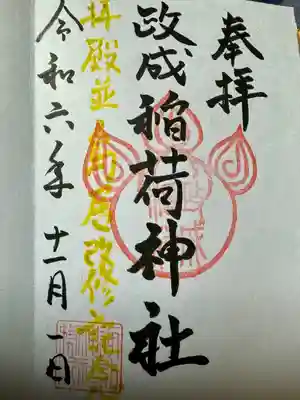 奉拝
政成稲荷神社
拝殿並 改修
令和六年十一月一日